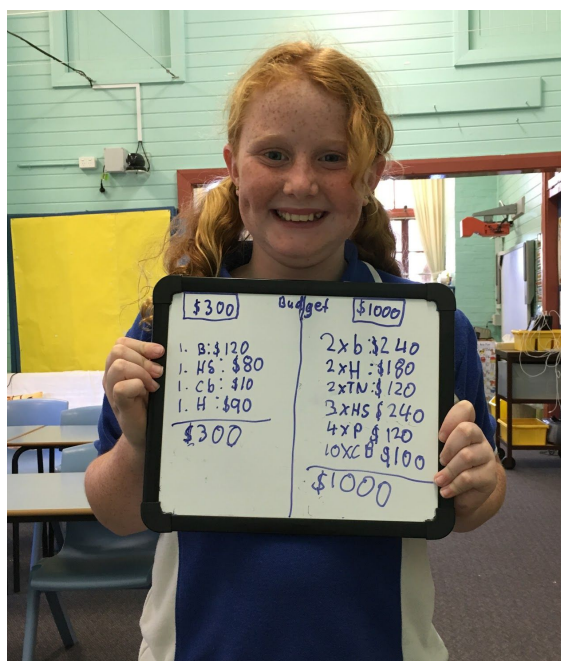 Budget
$300
1. B:$120
1. HS: $80
1. Cb: $10
1. H:$90
$300
$1000
2xb:$240
2xH:$180
2xTN:$120
3xHS $240
4xP $120
10XCB $100
$1000